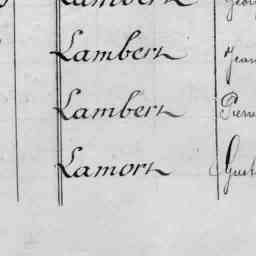 Lambert
Lambert Jean
Lambert Pierre
Lamort Gust